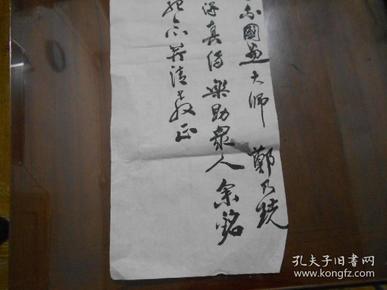 國画大师 鄭乃珖
真傳 樂助眾人 余銘
念并请教正
孔夫子旧书网
www.kongfz.com